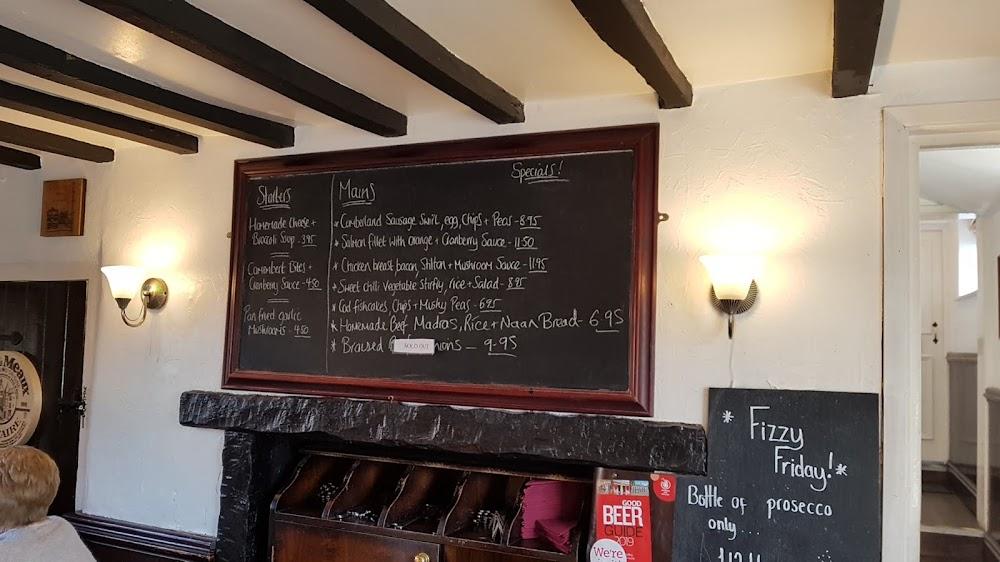 Specials!
Starters
Homemade Cheese +
Broccoli Soup - 3.95
Camembert Bites +
Cranberry Sauce - 4.50
Pan fried garlic
Mushrooms - 4.50
Mains
* Cumberland Sausage Swirl, egg, Chips + Peas - 8.95
* Salmon fillet with orange + Cranberry Sauce - 11.50
* Chicken breast, bacon, Stilton + Mushroom Sauce - 11.95
* Sweet chilli Vegetable Stirfry, rice + Salad - 8.95
* Cod fishcakes, Chips + Mushy Peas - 6.95
* Homemade Beef Madras, Rice + Naan Bread - 6.95
* Braised onions - 9.95
SOLD OUT
Meaux
GOOD
BEER
GUIDE
2019
We're
* Fizzy
Friday! *
Bottle of prosecco
only...